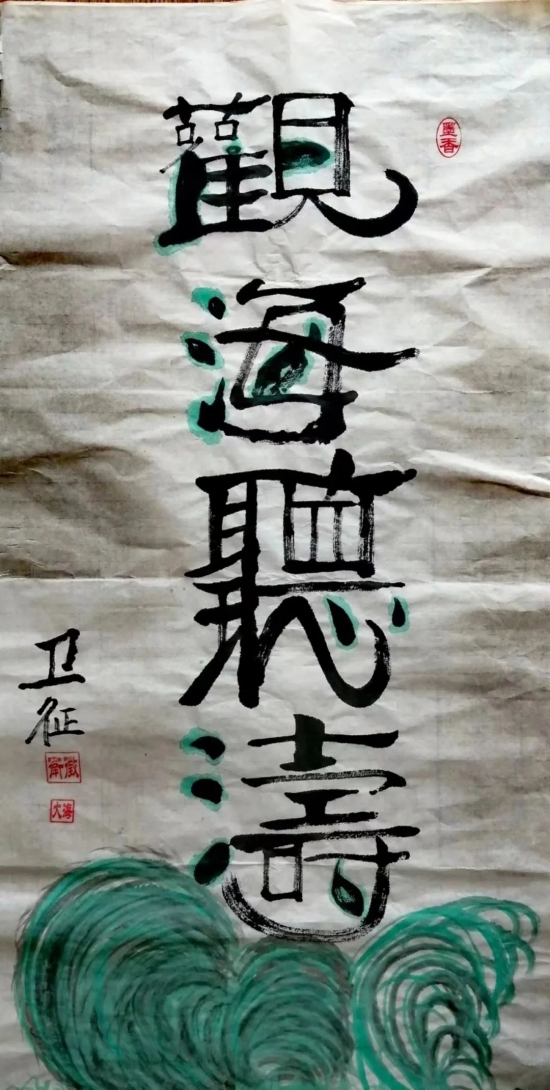 墨香
觀海聽濤
卫征
大海